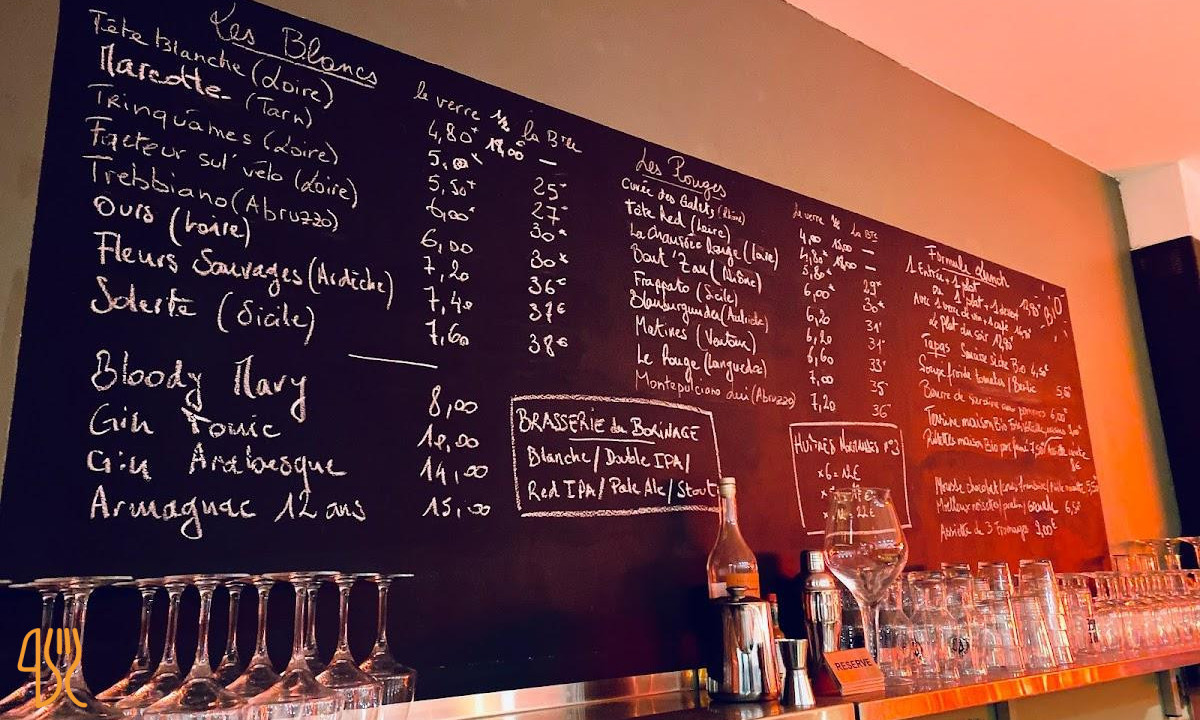 Les Blancs
le verre ½ la Btle
Tête Blanche (Loire) 4,80€ 18,00 —
Marcotte (Tarn) 5,00€ 25€
Trinquâmes (Loire) 5,50€ 27€
Facteur sul' vélo (Loire) 6,00€ 30€
Trebbiano (Abruzzo) 6,00 30€
Ours (Loire) 7,20 36€
Fleurs Sauvages (Ardèche) 7,40 37€
Solerte (Sicile) 7,60 38€
Bloody Mary 8,00
Gin Tonic
Gin Arabesque 14,00
Armagnac 12 ans 15,00
Les Rouges
le verre ½ la Btle
Cuvée des Galets (Rhône) 4,00 15,00 —
Tête Red (Loire) 4,80€ 18,00 —
La Chaussée Rouge (Loire) 5,80€ 29€
Bout d'Zan (Rhône) 6,00€ 30€
Frappato (Sicile) 6,20 31€
Blauburgunder (Autriche) 6,20 31€
Matines (Ventoux) 6,60 33€
Le Rouge (Languedoc) 7,00 35€
Montepulciano (Abruzzo) 7,20 36€
BRASSERIE du BORINAGE
Blanche / Double IPA /
Red IPA / Pale Ale / Stout
HUÎTRES N°3
x 6 = 12€
22€
Formule Lunch
1 Entrée + 1 plat
ou 1 plat + 1 dessert
BIO
Avec 1 verre de vin + 1 café
Le Plat du soir
Tapas Bio 4,50
Soupe froide tomates / 5,50
6,00€
Terrine maison Bio
Rillettes maison Bio
8€
Mousse chocolat
6,50
Assiette de 3 Fromages 9,00€
RESERVE